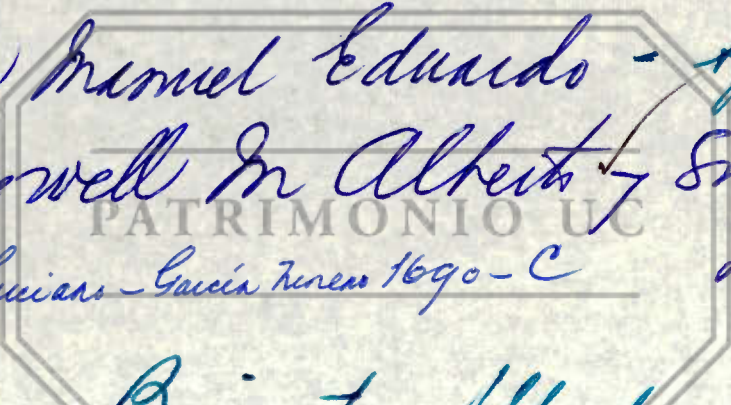 Manuel Eduardo -
well M Alberto y
PATRIMONIO UC
Luciano - García Moreno 1690 - C